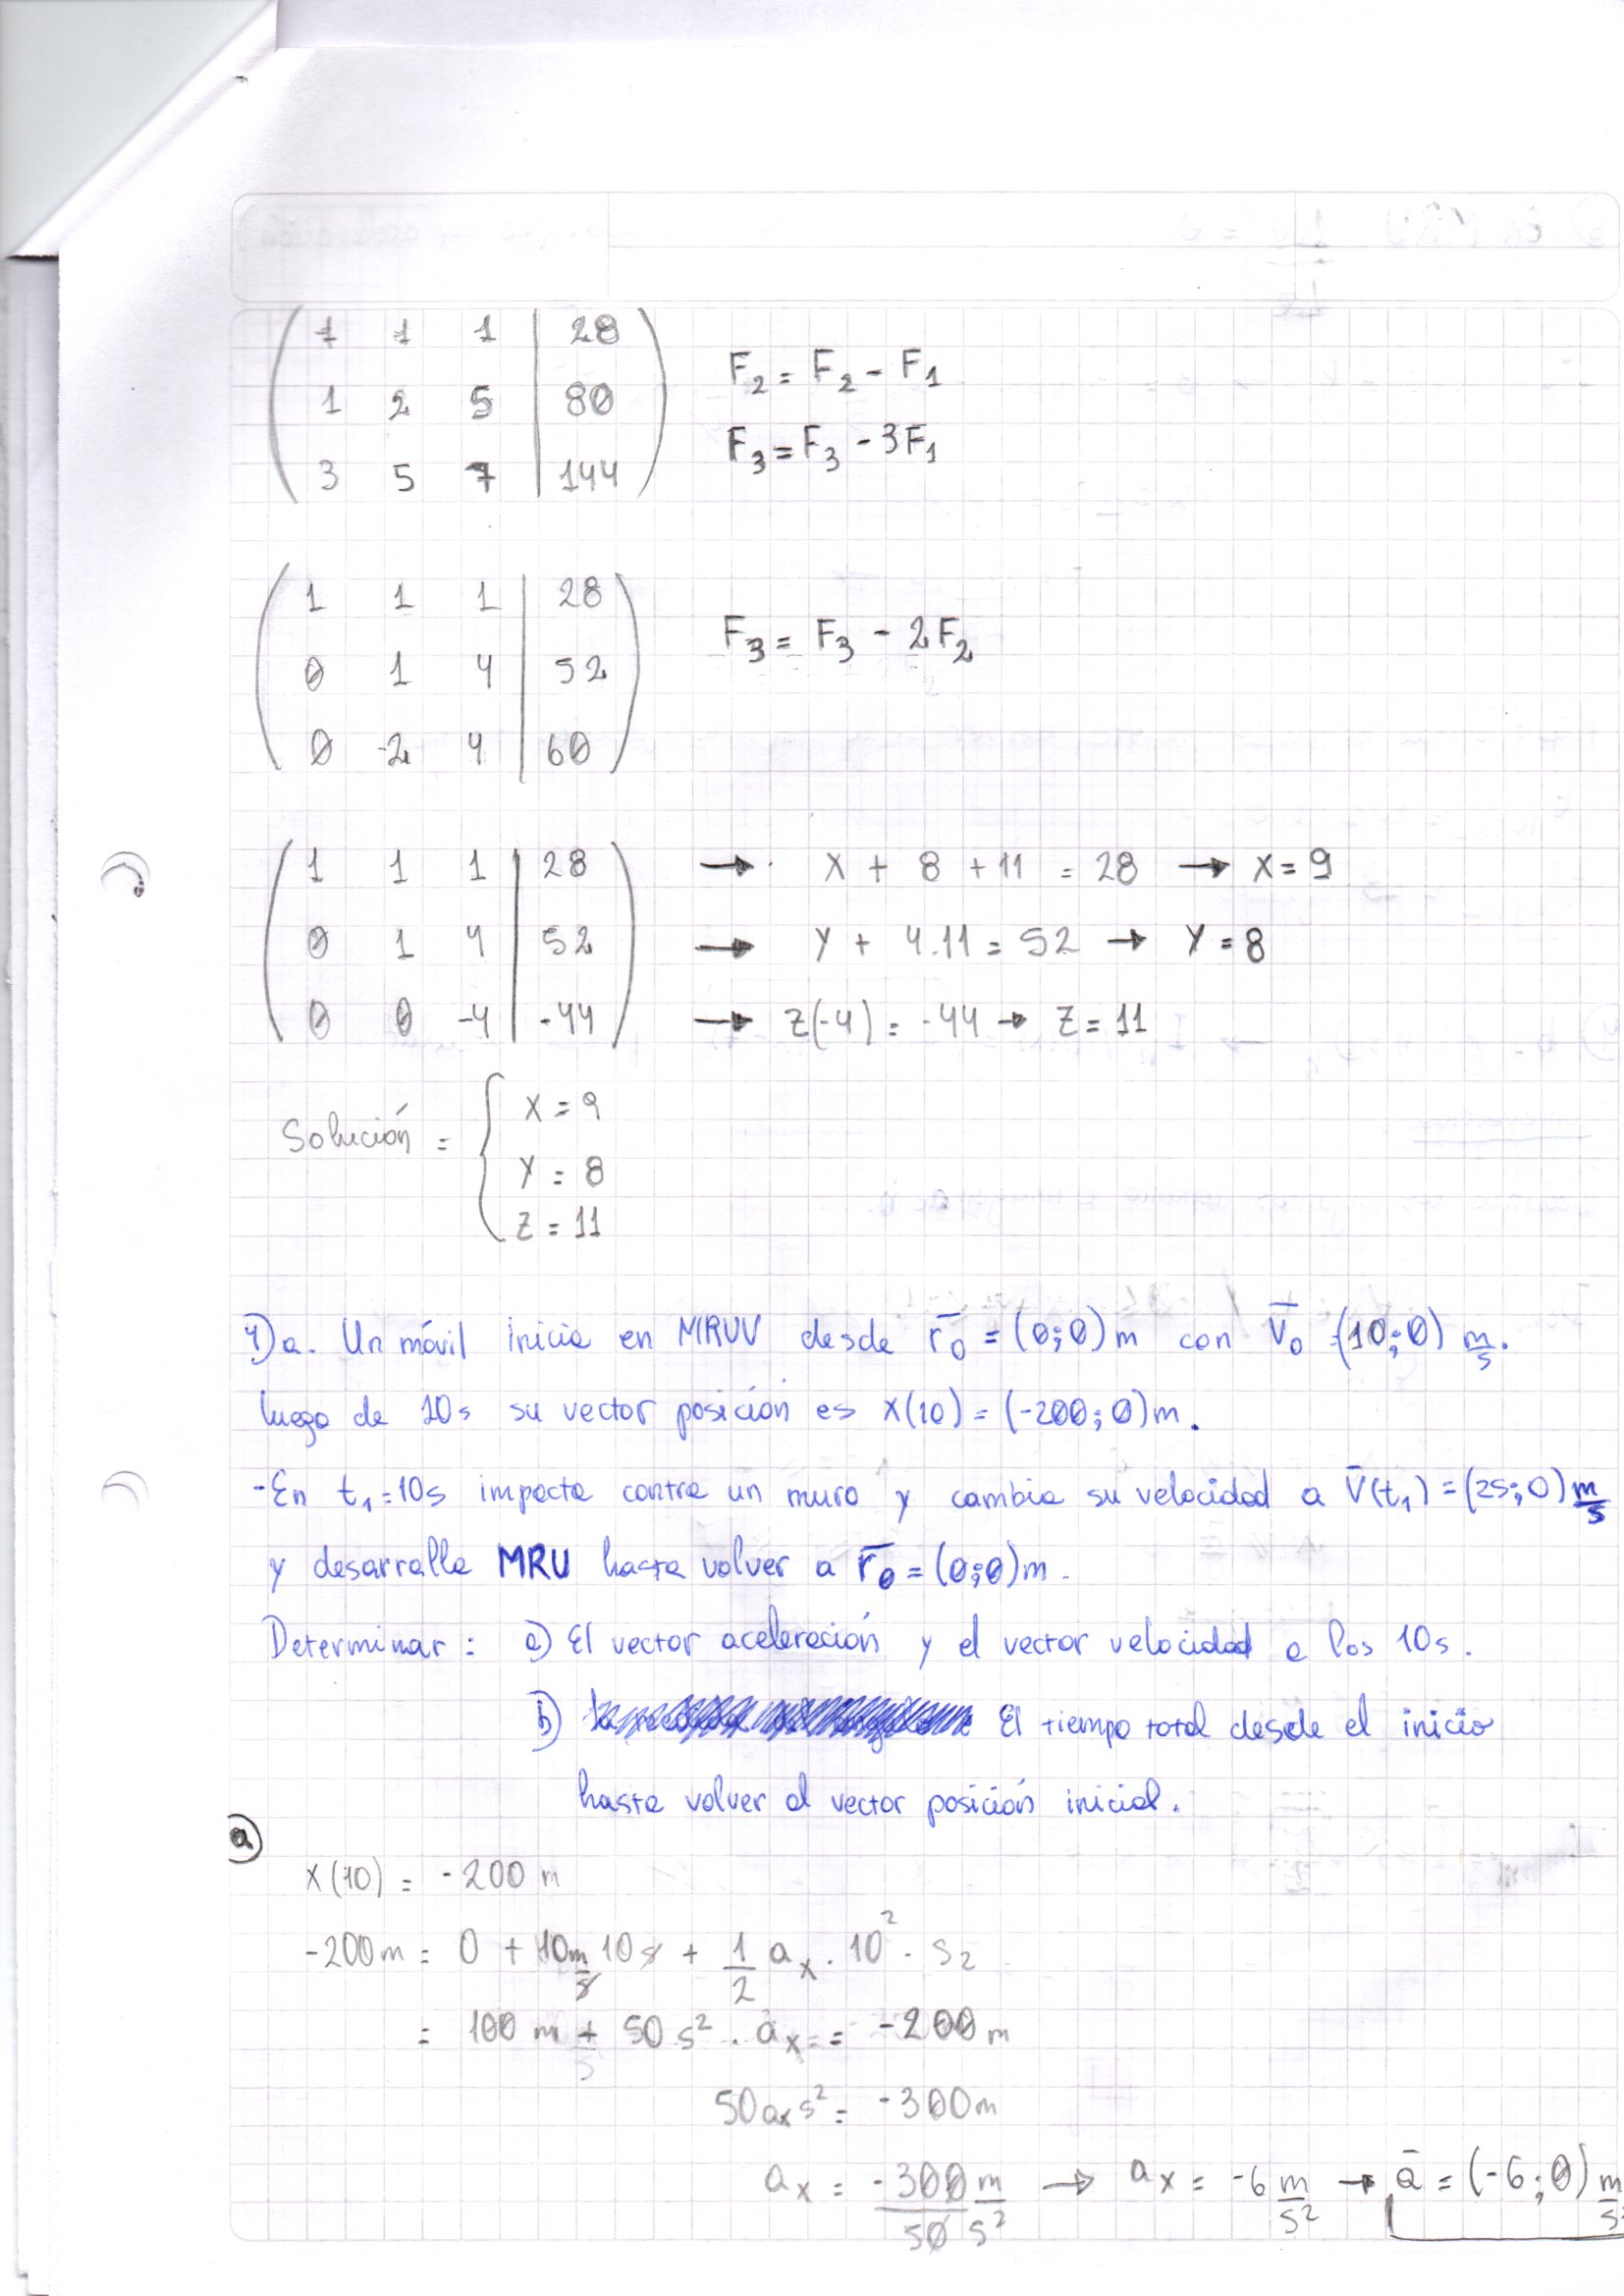 ( 1 1 1 | 28 )
F₂ = F₂ - F₁
( 1 2 5 | 80 )
F₃ = F₃ - 3F₁
( 3 5 7 | 144 )
( 1 1 1 | 28 )
( 0 1 4 | 52 )
F₃ = F₃ - 2F₂
( 0 -2 4 | 60 )
( 1 1 1 | 28 ) → x + 8 + 11 = 28 → x = 9
( 0 1 4 | 52 ) → y + 4.11 = 52 → y = 8
( 0 0 -4 | -44 ) → z(-4) = -44 → z = 11
Solución = { x = 9
y = 8
z = 11
4) a. Un móvil inicia en MRUV desde r̄₀ = (0;0)m con V̄₀ = (10;0) m/s.
luego de 10s su vector posición es x(10) = (-200;0)m.
-En t₁=10s impacta contra un muro y cambia su velocidad a V̄(t₁) = (25;0) m/s
y desarrolla MRU hasta volver a r̄₀ = (0;0)m.
Determinar: a) El vector aceleración y el vector velocidad a los 10s.
b) El tiempo total desde el inicio
hasta volver al vector posición inicial.
a
x(10) = -200 m
-200m = 0 + 10 m/s 10 s + 1/2 aₓ . 10² . s₂
= 100 m + 50 s² . aₓ = -200 m
50 aₓ s² = -300m
aₓ = -300/50 m/s² → aₓ = -6 m/s² → ā = (-6;0) m/s